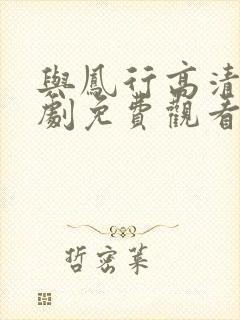 與鳳行高清
劇免費觀看
哲密葉